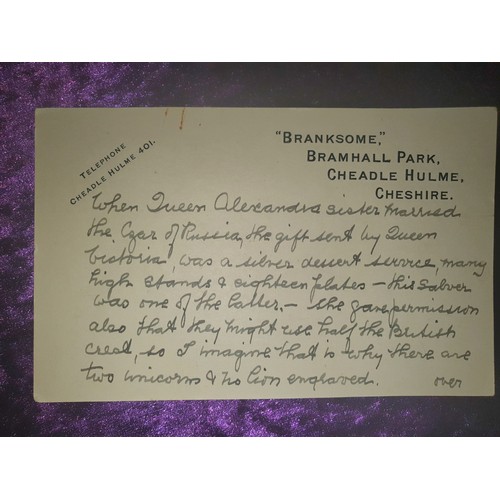 TELEPHONE
CHEADLE HULME 401.
"BRANKSOME,"
BRAMHALL PARK,
CHEADLE HULME,
CHESHIRE.
When Queen Alexandra sister married
the Czar of Russia, the gift sent by Queen
Victoria, was a silver dessert service, many
high stands & eighteen plates – this salver
was one of the latter. – She gave permission
also that they might use half the British
crest, so I imagine that is why there are
two unicorns & no lion engraved.
over